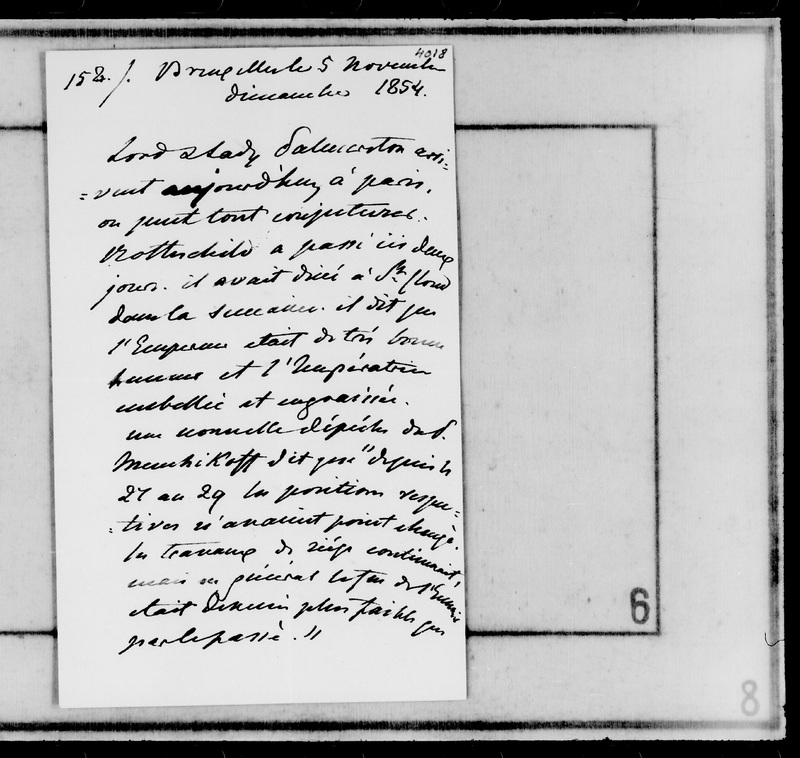 4018
158./. Bruxelles le 5 Novembre
dimanche 1854.
Lord & Lady Palmerston arri=
=vent aujourd'huy à paris.
on peut tout conjecturer.
Rothschild a passé ici deux
jours. il avait diné à St Cloud
dans la semaine. il dit que
l'Empereur etait de très bonne
humeur et l'Impératrice
embellie et engraissée.
une nouvelle dépêche du P.
Menchikoff dit que "depuis le
27 au 29 les positions respec=
=tives n'avaient point changé.
les travaux de siége continuaient,
mais en général le feu de l'Ennemi
etait devenu plus faible que
par le passé."
6
8